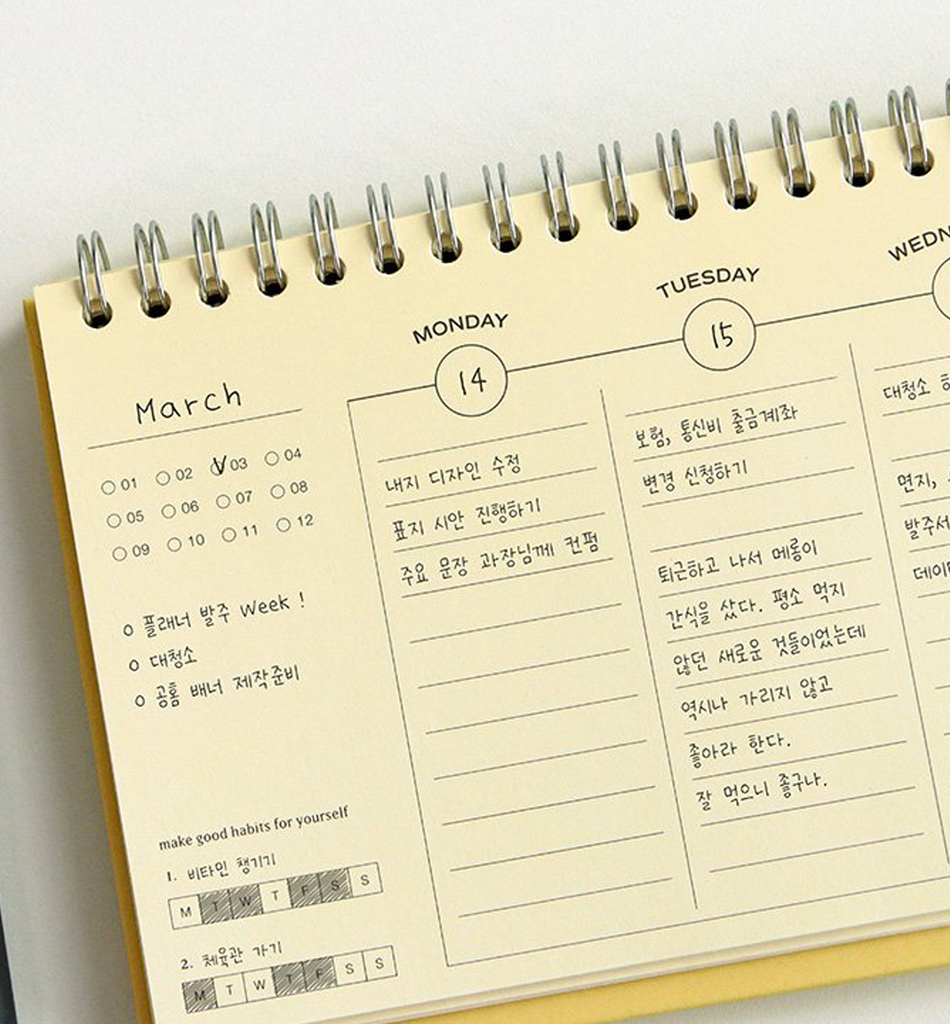 March
01 02 V 03 04
05 06 07 08
09 10 11 12
o 플래너 발주 Week !
o 대청소
o 공홈 배너 제작준비
make good habits for yourself
1. 비타민 챙기기
M T W T F S S
2. 체육관 가기
M T W T F S S
MONDAY
14
내지 디자인 수정
표지 시안 진행하기
주요 문장 과장님께 컨펌
TUESDAY
15
보험, 통신비 출금계좌
변경 신청하기
퇴근하고 나서 메롱이
간식을 샀다. 평소 먹지
않던 새로운 것들이었는데
역시나 가리지 않고
좋아라 한다.
잘 먹으니 좋구나.
WEDN
대청소
면지,
발주서
데이터